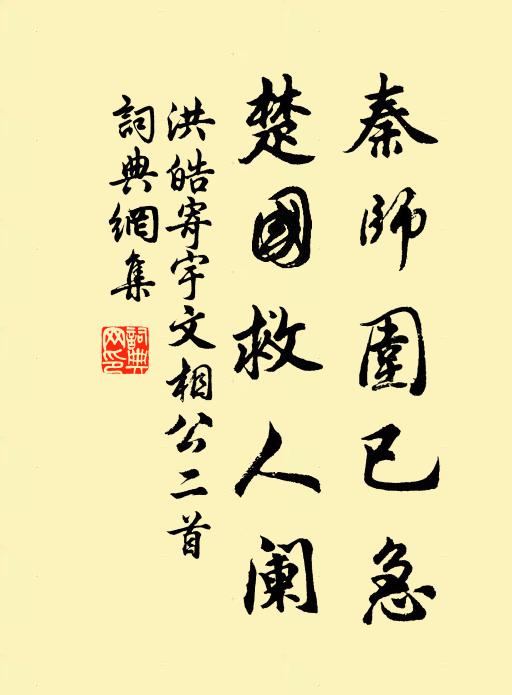 秦師圍已急
楚國救人闌
洪皓寄宇文相公二首
詞典網集
詞典网印